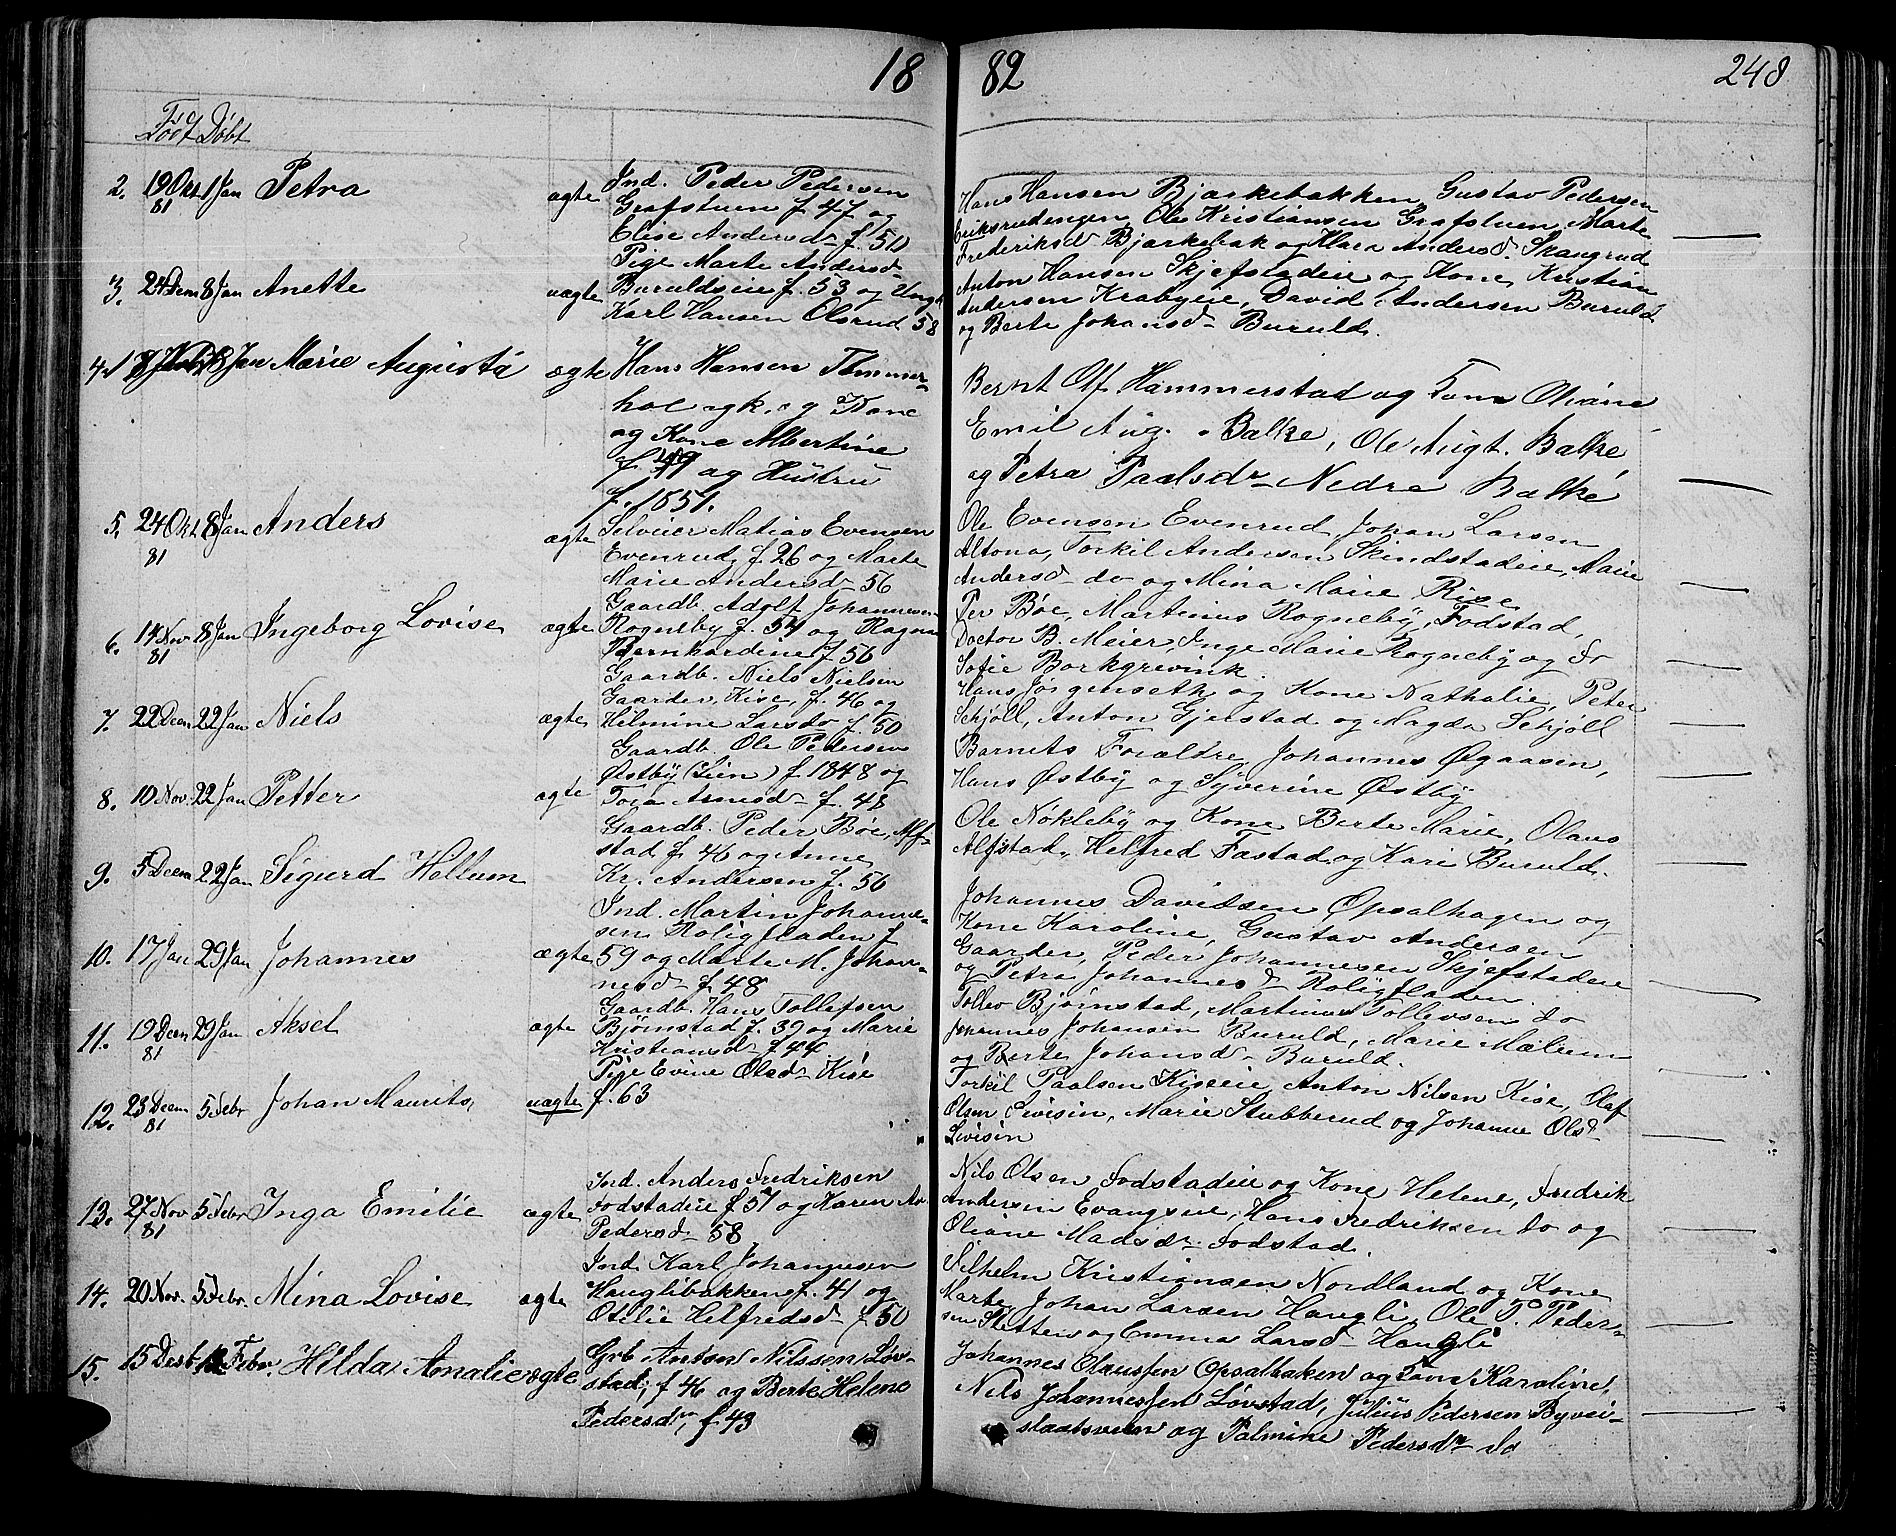 18 82 248
Født Døbt
2. 19 Okt 81 1 Jan Petra ægte
Ind. Peder Pedersen
Grafstuen f. 47 og
Elise Andersd f. 50
Hans Hansen Bjærkebakken Gustav Pedersen
Eriksrudengen, Ole Kristiansen Grafstuen, Marte
Frederiksd Bjærkebak og Klara Andersd. Skangrud
3. 24 Decm 8 Jan Anette uægte
Pige Marte Andersd
Buruldseie f. 53 og Ungk
Karl Hansen Olsrud 58
Anton Hansen Skjefstadeie og Kone, Kristian
Andersen Krabyeie, David Andersen Buruld
og Berte Johansd Buruld.
4. Jan Marie Augusta ægte
Hans Hansen Tømmer-
hol og Kone
og Kone Albertine
og Hustru
f. 1851.
Bernt Olf Hammerstad og Kone Oliane
Emil Aug. Balke, Ole Augt. Balke,
og Petra Paalsdr Nedre Balke
5. 24 Okt 81 8 Jan Anders ægte
Selveier Matias Evensen
Evenrud, f. 26 og Marte
Marie Andersd 56
Ole Evensen Evenrud, Johan Larsen
Altona, Torkil Andersen Skindstadeie, Marie
Andersd do og Mina Marie Rise
6. 14 Nov 81 8 Jan Ingeborg Lovise ægte
Gaardb. Adolf Johannesen
Rogneby f. 54 og Ragna
Bernhardine f. 56
Per Bøe, Martinus Rogneby, Fodstad,
Doctor B. Meier, Inge Marie Rogneby og do
Sofie Borkgrevink.
7. 22 Decm 22 Jan Niels ægte
Gaardb. Niels Nielsen
Gaarder, Kise, f. 46 og
Hilmine Larsd f. 50
Hans Jørgenseth og Kone Nathalie, Peter
Schjøll, Anton Gjerstad og Magda Schjøll
8. 10 Nov. 22 Jan Petter ægte
Gaardb. Ole Pedersen
Østby (Lien) f. 1848 og
Toja Arnesd f. 48
Barnets Forældre, Johannes Øgaasen,
Hans Østby og Syverine Østby
9. 5 Decm 22 Jan Sigurd Hellum
Gaardb. Peder Bøe, Alf-
stad f. 46 og Anne
Kr. Andersen f. 56
Ole Nøkleby og Kone Berte Marie, Olaus
Alfstad, Helfred Fæstad og Kari Buruld.
10. 17 Jan 29 Jan Johannes ægte
Ind. Martin Johanne-
sen Roligfladen f
59 og Marte M. Johan-
nesd f. 48
Johannes Davidsen Opsalhagen og
Kone Karoline, Gustav Andersen
Gaarder, Peder Johannesen Skjefstadeie
og Petra Johannesd Roligfladen.
11. 19 Decm 81 29 Jan Aksel ægte
Gaardb. Hans Tollefsen
Bjørnstad f. 39 og Marie
Kristiansd f. 44
Tollev Bjørnstad, Martinus Tollevsen do
Johannes Johansen Buruld, Marie Mælum
og Berte Johansd Buruld.
12. 23 Decm 81 5 Febr Johan Maurits, uægte
Pige Evine Olsd Kise
f. 63
Torkil Paalsen Kiseeie, Anton Nilsen Kise, Olaf
Olsen Sivisin, Marie Stubberud og Johanne Olsd
Sivisin
13. 27 Nov 81 5 Febr Inga Emilie ægte
Ind. Anders Fredriksen
Fodstadeie f 57 og Karen An.
Pedersd 58
Nils Olsen Fodstadeie og Kone Helene, Fredrik
Andersen Evangseie, Hans Fredriksen do og
Oliane Madsdr. Fodstad.
14. 20 Nov. 5 Febr. Mina Lovise ægte
Ind Karl Johannesen
Hauglibakken f. 41 og
Otilie Helfredsd f 50
Vilhelm Kristiansen Nordland og Kone
Marte, Johan Larsen Haugli, Ole P. Peder-
sen Sletten og Emma Larsd Haugli
15. 15 Decb 12 Febr. Hilda Amalie ægte
Grb Anton Nilssen Løv-
stad, f 46 og Berte Helene
Pedersdtr, f. 43
Johannes Claussen Opsalbaken og Kone Karoline,
Nils Johannessen Løvstad, Julius Pedersen Byvei-
staatsveien og Palmine Pedersdtr do